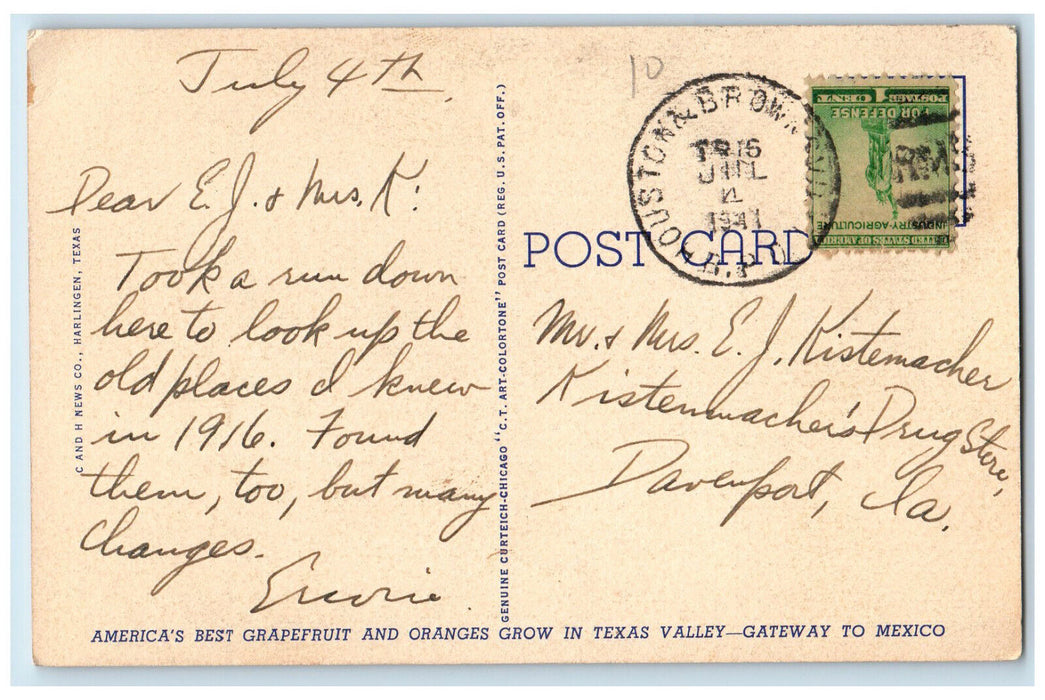 July 4th,
Dear E. J. & Mrs. K:
Took a run down
here to look up the
old places I knew
in 1916. Found
them, too, but many
changes.
C AND H NEWS CO., HARLINGEN, TEXAS
GENUINE CURTEICH-CHICAGO "C.T. ART-COLORTONE" POST CARD (REG. U.S. PAT. OFF.)
10
HOUSTON & BROWN
R.P.O.
TR 15
JUL
4
1941
1 CENT 1
POSTAGE
FOR DEFENSE
INDUSTRY-AGRICULTURE
UNITED STATES OF AMERICA
POST CARD
Mr. & Mrs. E. J. Kistemacher
Kistenmacher's Drug Store,
Davenport, Ia.
AMERICA'S BEST GRAPEFRUIT AND ORANGES GROW IN TEXAS VALLEY—GATEWAY TO MEXICO